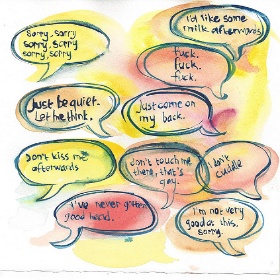 Sorry, sorry
sorry, sorry
sorry, sorry
I'd like some
milk afterwards
fuck.
fuck.
fuck.
Just be quiet.
Let me think.
Just come on
my back.
Don't kiss me
afterwards
don't touch me
there, that's
gay.
don't
cuddle
I've never gotten
good head.
I'm not very
good at this.
Sorry.